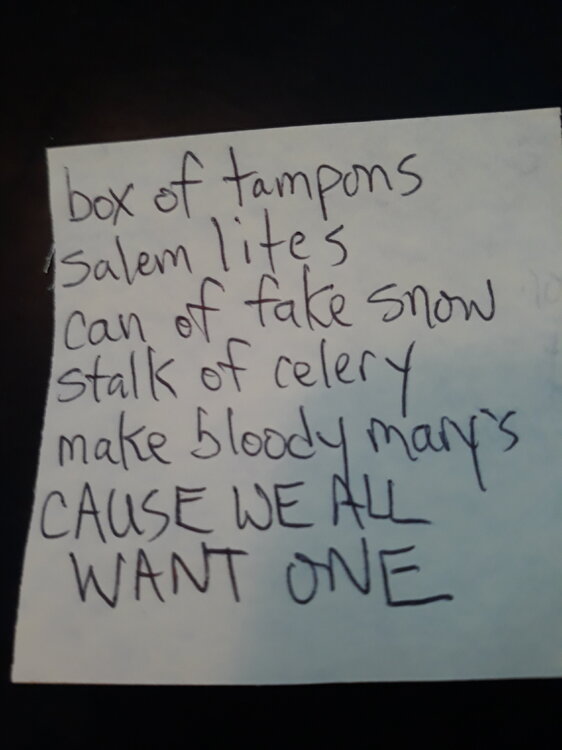 box of tampons
salem lites
can of fake snow
stalk of celery
make bloody mary's
CAUSE WE ALL
WANT ONE